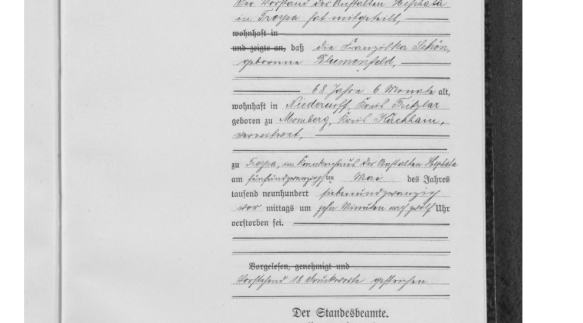 Der Vorstand der Anstalten Hephata
in Treysa hat mitgeteilt,
wohnhaft in
und zeigte an, daß die Franziska Schön,
geborene Blumenfeld,
68 Jahre 6 Monate alt,
wohnhaft in Niederurff, Kreis Fritzlar
geboren zu Momberg, Kreis Kirchhain,
verwitwet,
zu Treysa, im Krankenhaus der Anstalten Hephata
am fünfundzwanzigsten Mai des Jahres
tausend neunhundert siebenundzwanzig
vor mittags um zehn Minuten nach zwölf Uhr
verstorben sei.
Vorgelesen, genehmigt und
Vorstehend 18 Druckworte gestrichen
Der Standesbeamte.